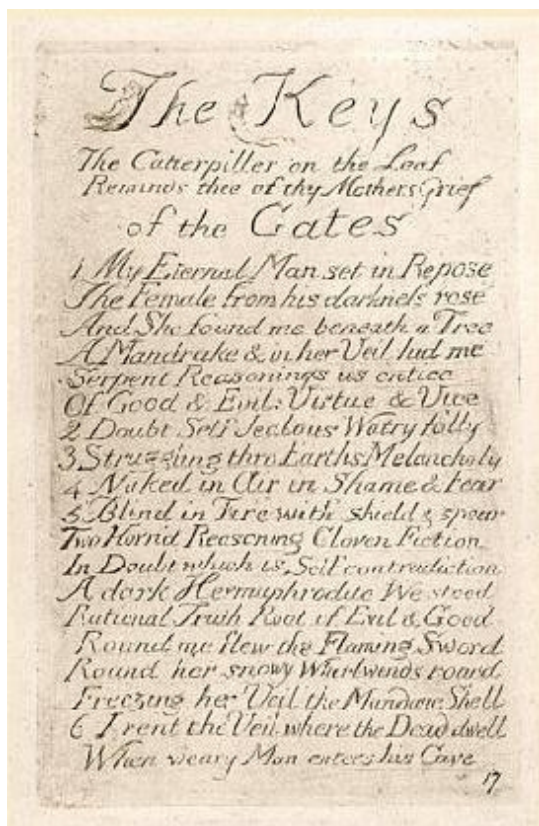 The Keys
The Caterpiller on the Leaf
Reminds thee of thy Mothers Grief
of the Gates
1 My Eternal Man set in Repose
The Female from his darkness rose
And She found me beneath a Tree
A Mandrake & in her Veil hid me
Serpent Reasonings us entice
Of Good & Evil: Virtue & Vice
2 Doubt Self Jealous Watry folly
3 Struggling thro Earths Melancholy
4 Naked in Air in Shame & Fear
5 Blind in Fire with shield & spear
Two Horn'd Reasoning Cloven Fiction
In Doubt which is Self contradiction
A dark Hermaphrodite We stood
Rational Truth Root of Evil & Good
Round me flew the Flaming Sword
Round her snowy Whirlwinds roard
Freezing her Veil the Mundane Shell
6 I rent the Veil where the Dead dwell
When weary Man enters his Cave
17